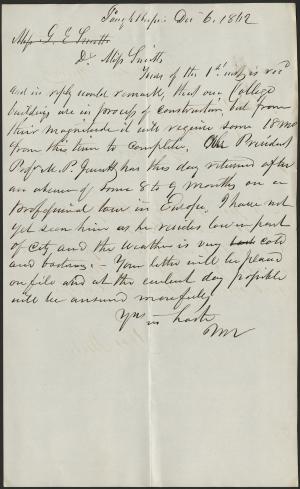 Po'keepsie Dec 6. 1862
Miss G. E. Smith
Dr Miss Smith
Yours of the 1st inst is recd
and in reply would remark, that our College
building are in process of construction but from
their magnitude it will require some 18 mo
from this time to complete. Our President
Prof M. P. Jewett has this day returned after
an absence of some 8 to 9 months on a
Professional tour in Europe. I have not
yet seen him as he resides low in part
of City and the weather is very cold
and boisterous. – Your letter will be placed
on file and at the earliest day possible
will be answd more fully
Yrs in haste
MV